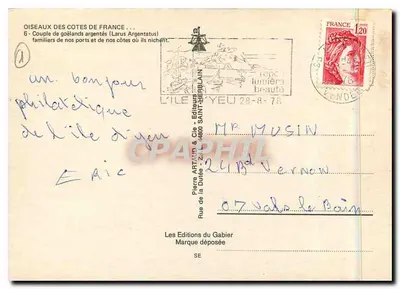 OISEAUX DES COTES DE FRANCE...
6 - Couple de goélands argentés (Larus Argentatus)
familiers de nos ports et de nos côtes où ils nichent.
1
FRANCE
1,20
lumière
beauté
L'ILE D'YEU 28-8-78
un bonjour
philatélique
de l'île d'yeu
ERIC
Pierre ARTAUD & Cie - Editeurs
44800 SAINT-HERBLAIN
Mr MUSIN
24 Bd VERNON
07 Vals le Bain
CPARAMA
Les Editions du Gabier
Marque déposée
SE